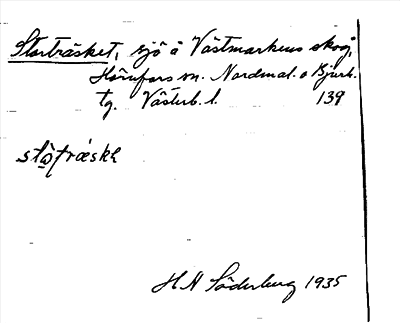 Storträsket, sjö å Västmarkens skog,
Hörnefors sn. Nordmal. o Bjurh.
tg. Västerb. l. 139
stōträskɛ
H H Söderburg 1935